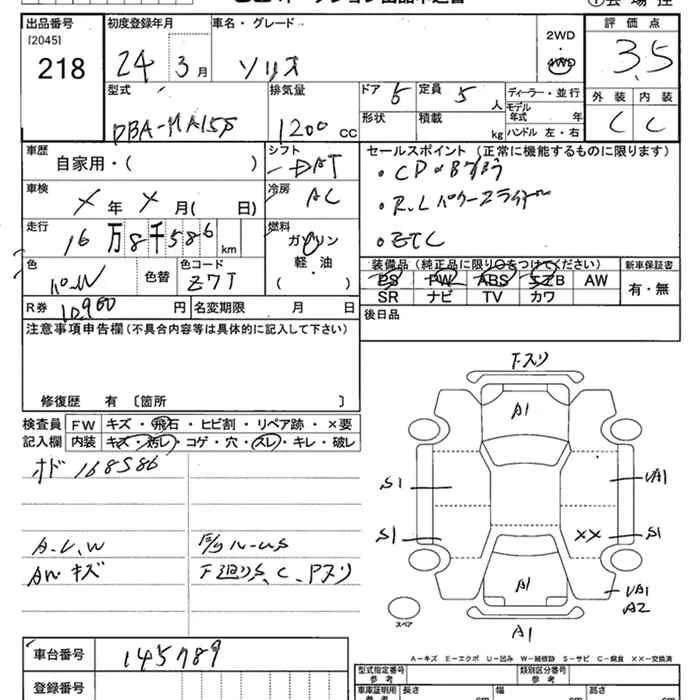 出品番号
[2045]
218
初度登録年月
24 3月
車名・グレード
ソリオ
2WD
・
4WD
評価点
3.5
型式
DBA-MA15S
排気量
1200 CC
ドア 5
定員 5 人
形状
積載 kg
ディーラー・並行
モデル年式 年
ハンドル 左・右
外装 内装
C C
車歴
自家用・( )
シフト
DAT
セールスポイント(正常に機能するものに限ります)
・R.Lパワースライドドア
・ETC
車検
X年X月( 日)
冷房
AC
走行
16万8千586 km
燃料
ガソリン
軽・油
( )
色
パール
色替
色コード
Z7T
装備品(純正品に限り○をつけてください)
PS PW ABS エアB AW
SR ナビ TV カワ
新車保証書
有・無
R券
10,960円
名変期限 月 日
後日品
注意事項申告欄(不具合内容等は具体的に記入して下さい)
修復歴 有 〔箇所 〕
検査員
記入欄
FW キズ・飛石・ヒビ割・リペア跡・×要
内装 キズ・汚レ・コゲ・穴・スレ・キレ・破レ
オド 168586
A-U,W
AWキズ
F廻りS、C、Pスリ
Fスリ
A1
S1
UA1
S1
XX
S1
A1
UA1
A2
A1
スペア
A-キズ E-エクボ U-凹み W-補修跡 S-サビ C-腐食 ××-交換済
車台番号
145789
登録番号
型式指定番号
参考
類別区分番号
参考
車庫証明用
参考
長さ cm
幅 cm
高さ cm